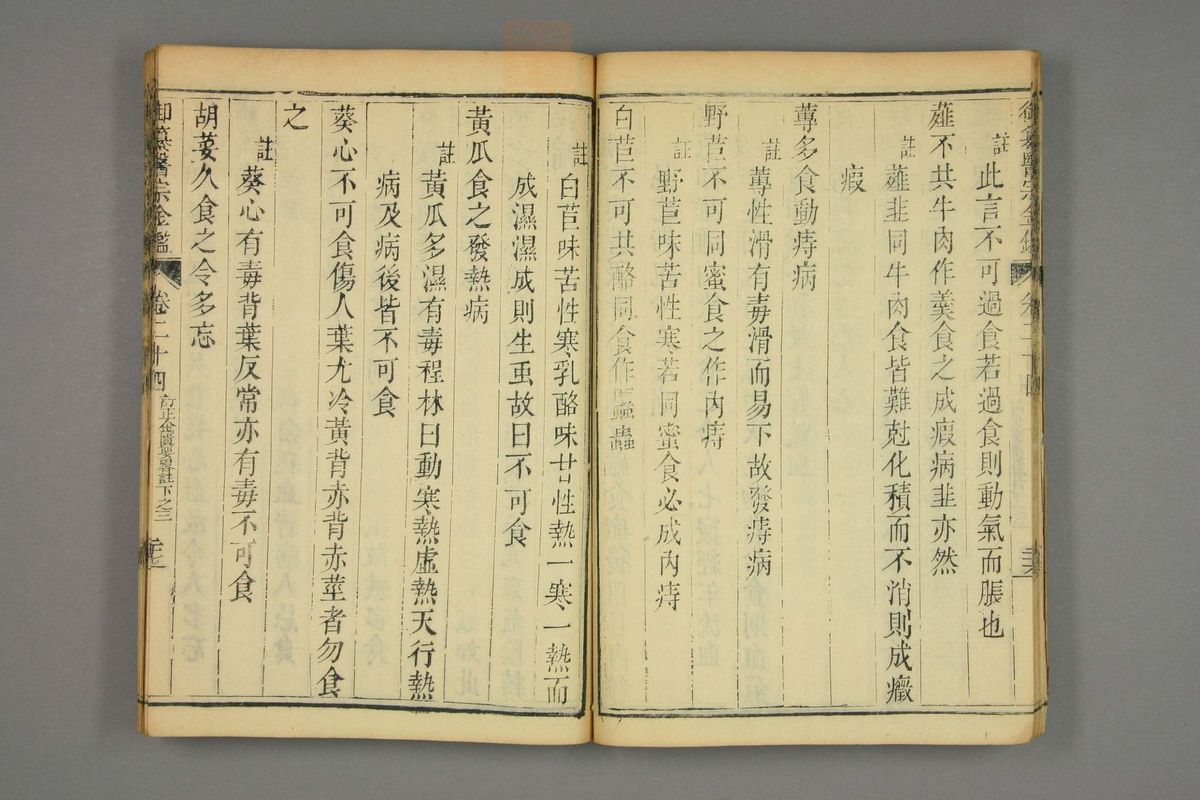 註此言不可過食若過食則動氣而脹也
薤不共牛肉作羹食之成瘕病韭亦然
註薤韭同牛肉食皆難尅化積而不消則成癥
瘕
蓴多食動痔病
註蓴性滑有毒滑而易下故發痔病
野苣不可同蜜食之作內痔
註野苣味苦性寒若同蜜食必成內痔
白苣不可共酪同食作䘌蟲
註白苣味苦性寒乳酪味甘性熱一寒一熱而
成濕濕成則生虫故曰不可食
黃瓜食之發熱病
註黃瓜多濕有毒程林曰動寒熱虛熱天行熱
病及病後皆不可食
葵心不可食傷人葉尤冷黃背赤背赤莖者勿食
之
註葵心有毒背葉反常亦有毒不可食
胡荽久食之令多忘
御纂醫宗金鑑 卷二十四 訂正金匱要畧註下之三